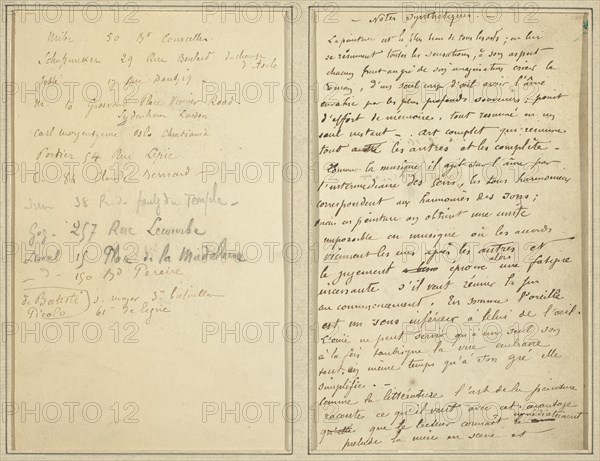 Uribe 50 Bd Courcelles
Schuffenecker 29 Rue Boulard
Gobbé 17 rue
10 Grosvenor Place Road
Sydenham London
Oslo Christiania
Portier 54 Rue Lépic
Claude Bernard
38 R du faubg du Temple -
257 Rue Lecourbe
15 Place de la Madeleine
- d - 150 Bd Pereire
de Batisté s. major 3e bataillon
Picolo 61e de ligne
- Notes Synthétiques. -
La peinture est le plus beau de tous les arts; en lui
se résument toutes les sensations, à son aspect
chacun peut au gré de son imagination créer le
roman, d'un seul coup d'œil avoir l'âme
envahie par les plus profonds souvenirs; point
d'effort de mémoire, tout résumé en un
seul instant. - Art complet qui résume
tout les autres et les complète. -
Comme la musique il agit sur l'âme par
l'intermédiaire des sens, les tons harmonieux
correspondent aux harmonies des sons;
mais en peinture on obtient une unité
impossible en musique où les accords
viennent les uns après les autres et
le jugement éprouve alors une fatigue
incessante s'il veut réunir la fin
au commencement. En somme l'oreille
est un sens inférieur à celui de l'œil.
L'ouïe ne peut servir qu'à un seul son
à la fois tandisque la vue embrasse
tout, en même temps qu'à son gré elle
simplifie. -
Comme la littérature l'art de la peinture
raconte ce qu'il veut avec cet avantage
que le lecteur connaît immédiatement le
prélude la mise en scène et
PHOTO 12